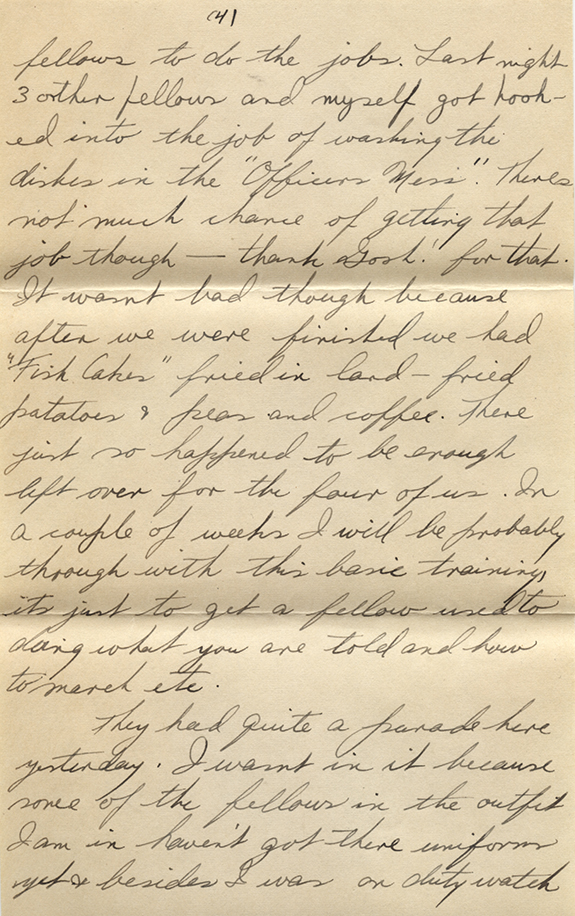 (4)
fellows to do the jobs. Last night
3 other fellows and myself got hook-
ed into the job of washing the
dishes in the "Officers Mess". Theres
not much chance of getting that
job though — thank Gosh! for that.
It wasnt bad though because
after we were finished we had
"Fish Cakes" fried in lard - fried
patatoes & peas and coffee. There
just so happened to be enough
left over for the four of us. In
a couple of weeks I will be probably
through with this basic training,
its just to get a fellow used to
doing what you are told and how
to march etc.
They had quite a parade here
yesterday. I wasnt in it because
some of the fellows in the outfit
I am in haven't got there uniforms
yet & besides I was on duty watch